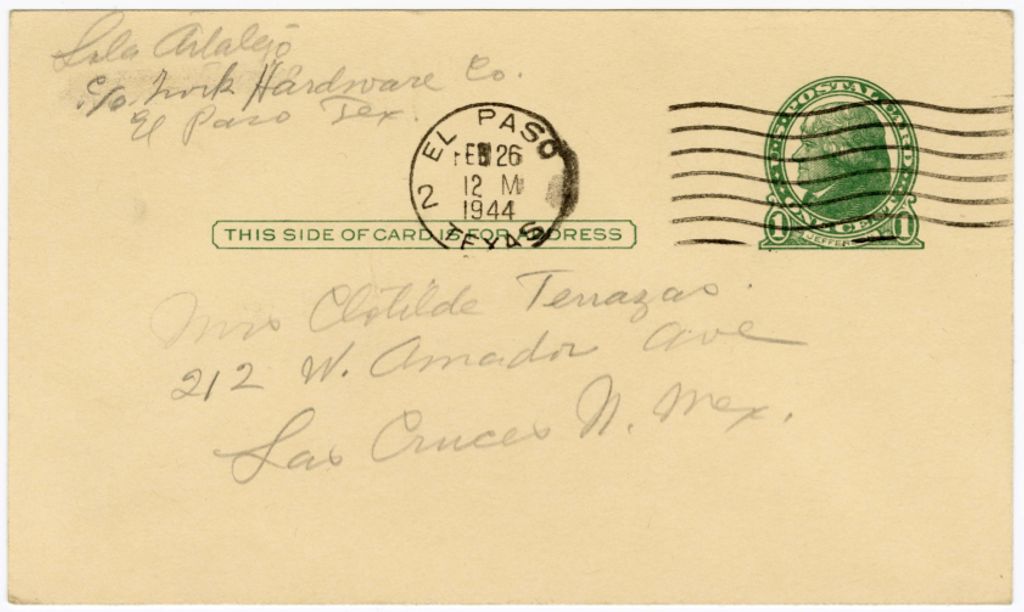 Lola Artalejo
c/o Hardware Co.
El Paso Tex.
EL PASO
2
FEB 26
12 M
1944
TEXAS
U.S. POSTAL CARD
1 ONE CENT 1
JEFFERSON
THIS SIDE OF CARD IS FOR ADDRESS
Mrs Clotilde Terrazas.
212 W. Amador Ave
Las Cruces N. Mex.